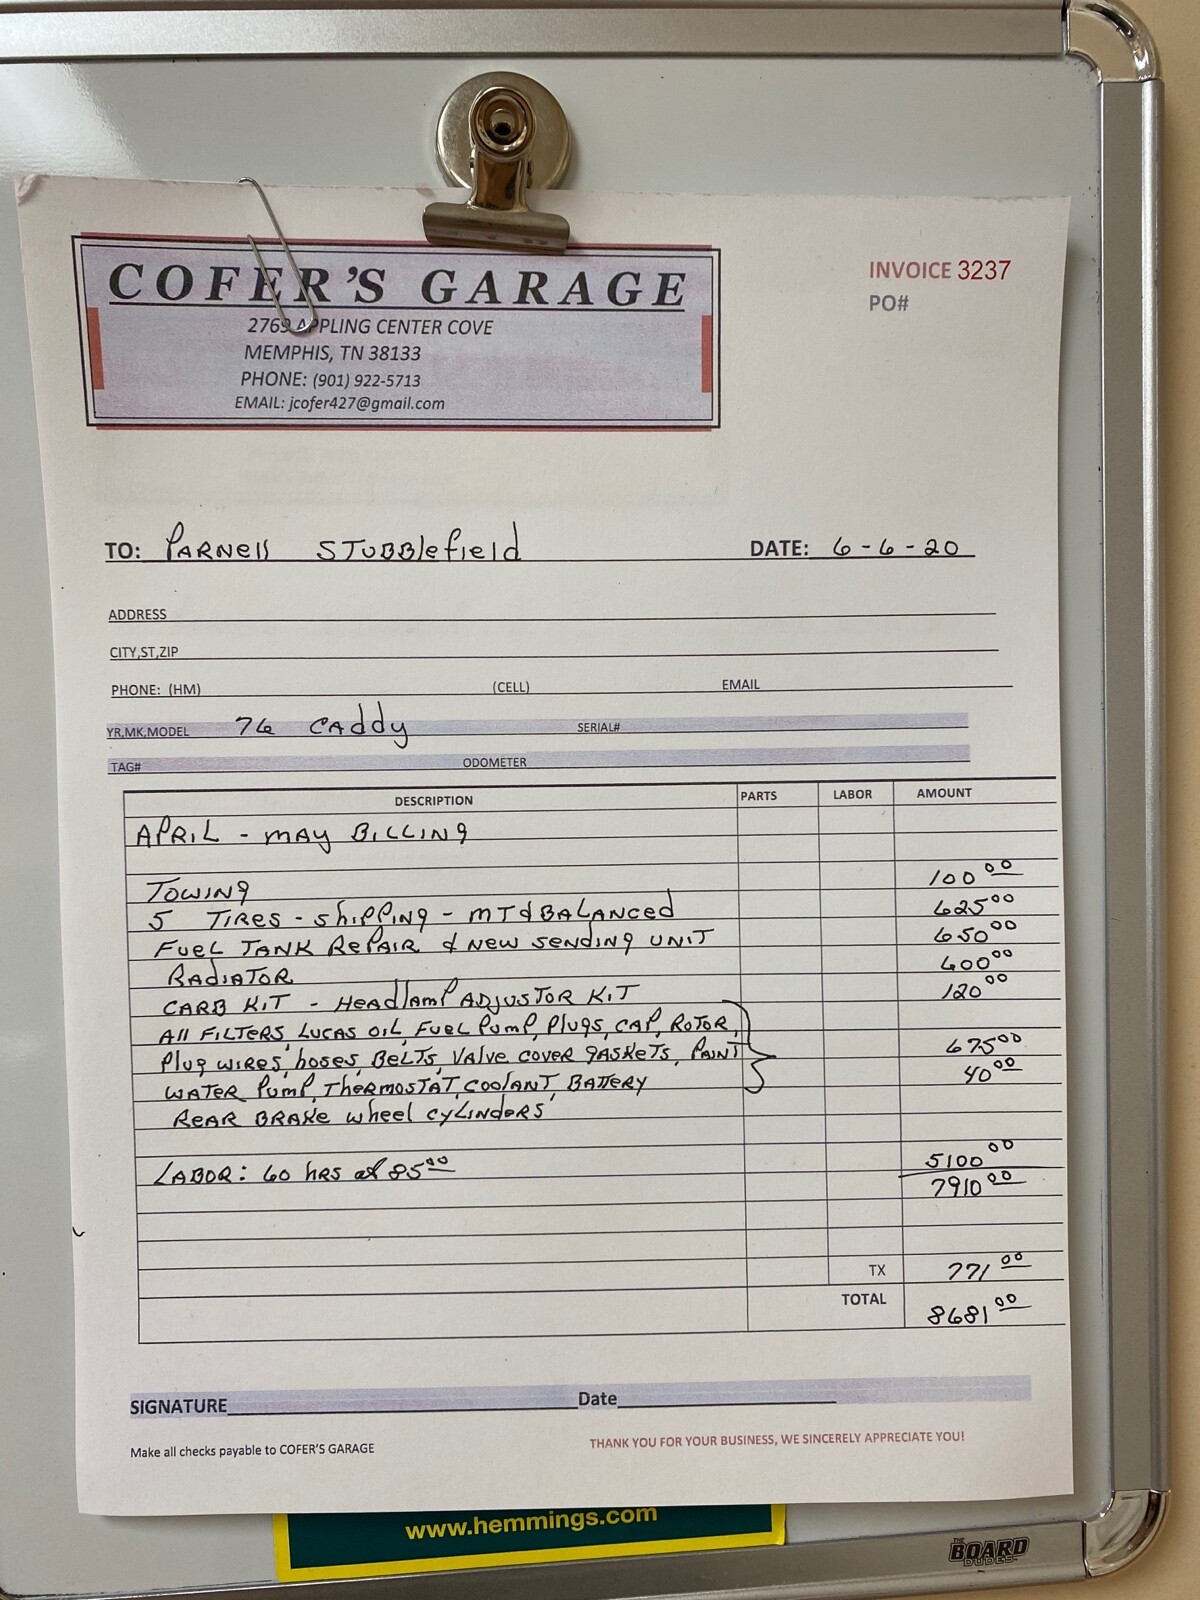 COFER'S GARAGE
2769 APPLING CENTER COVE
MEMPHIS, TN 38133
PHONE: (901) 922-5713
EMAIL: jcofer427@gmail.com
INVOICE 3237
PO#
TO: PARNell STUBBlefield DATE: 6-6-20
ADDRESS
CITY,ST,ZIP
PHONE: (HM) (CELL) EMAIL
YR,MK,MODEL 76 CAddy SERIAL#
TAG# ODOMETER
DESCRIPTION PARTS LABOR AMOUNT
APRIL - MAY BILLING
TOWING 100 00
5 TIRES - ShIPPING - MT & BALANCED 625 00
FUEL TANK REPAIR & NEW SENDING UNIT 650 00
RADIATOR 600 00
CARB KIT - HEADlAMP ADJUSTOR KIT 120 00
All FILTERS, LUCAS OIL, FUEL PUMP, PlUGS, CAP, ROTOR,
Plug WIRES, hoses, BELTS, VAlVE COVER GASKETS, PAINT 675 00
WATER PUMP, ThERMOSTAT, COOlANT, BATTERY 40 00
REAR BRAKE wheel CYLINDERS
LABOR: 60 hRS at 85 00 5100 00
7910 00
TX 771 00
TOTAL 8681 00
SIGNATURE Date
Make all checks payable to COFER'S GARAGE
THANK YOU FOR YOUR BUSINESS, WE SINCERELY APPRECIATE YOU!
www.hemmings.com
THE BOARD DUDES